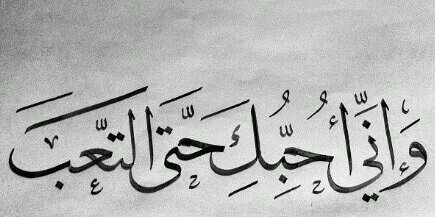 وَإنّي أُحُبِّكِ حَتَّى التَعَّب